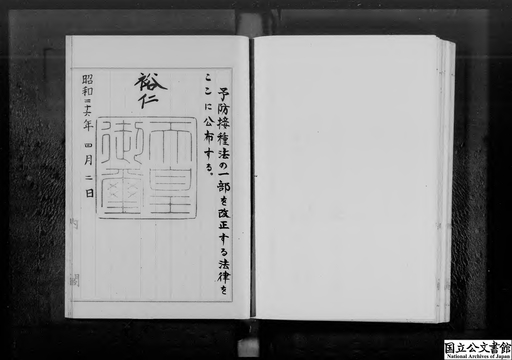 予防接種法の一部を改正する法律を
ここに公布する。
裕仁
天皇
御璽
昭和三十六年四月二日
内閣
国立公文書館
National Archives of Japan